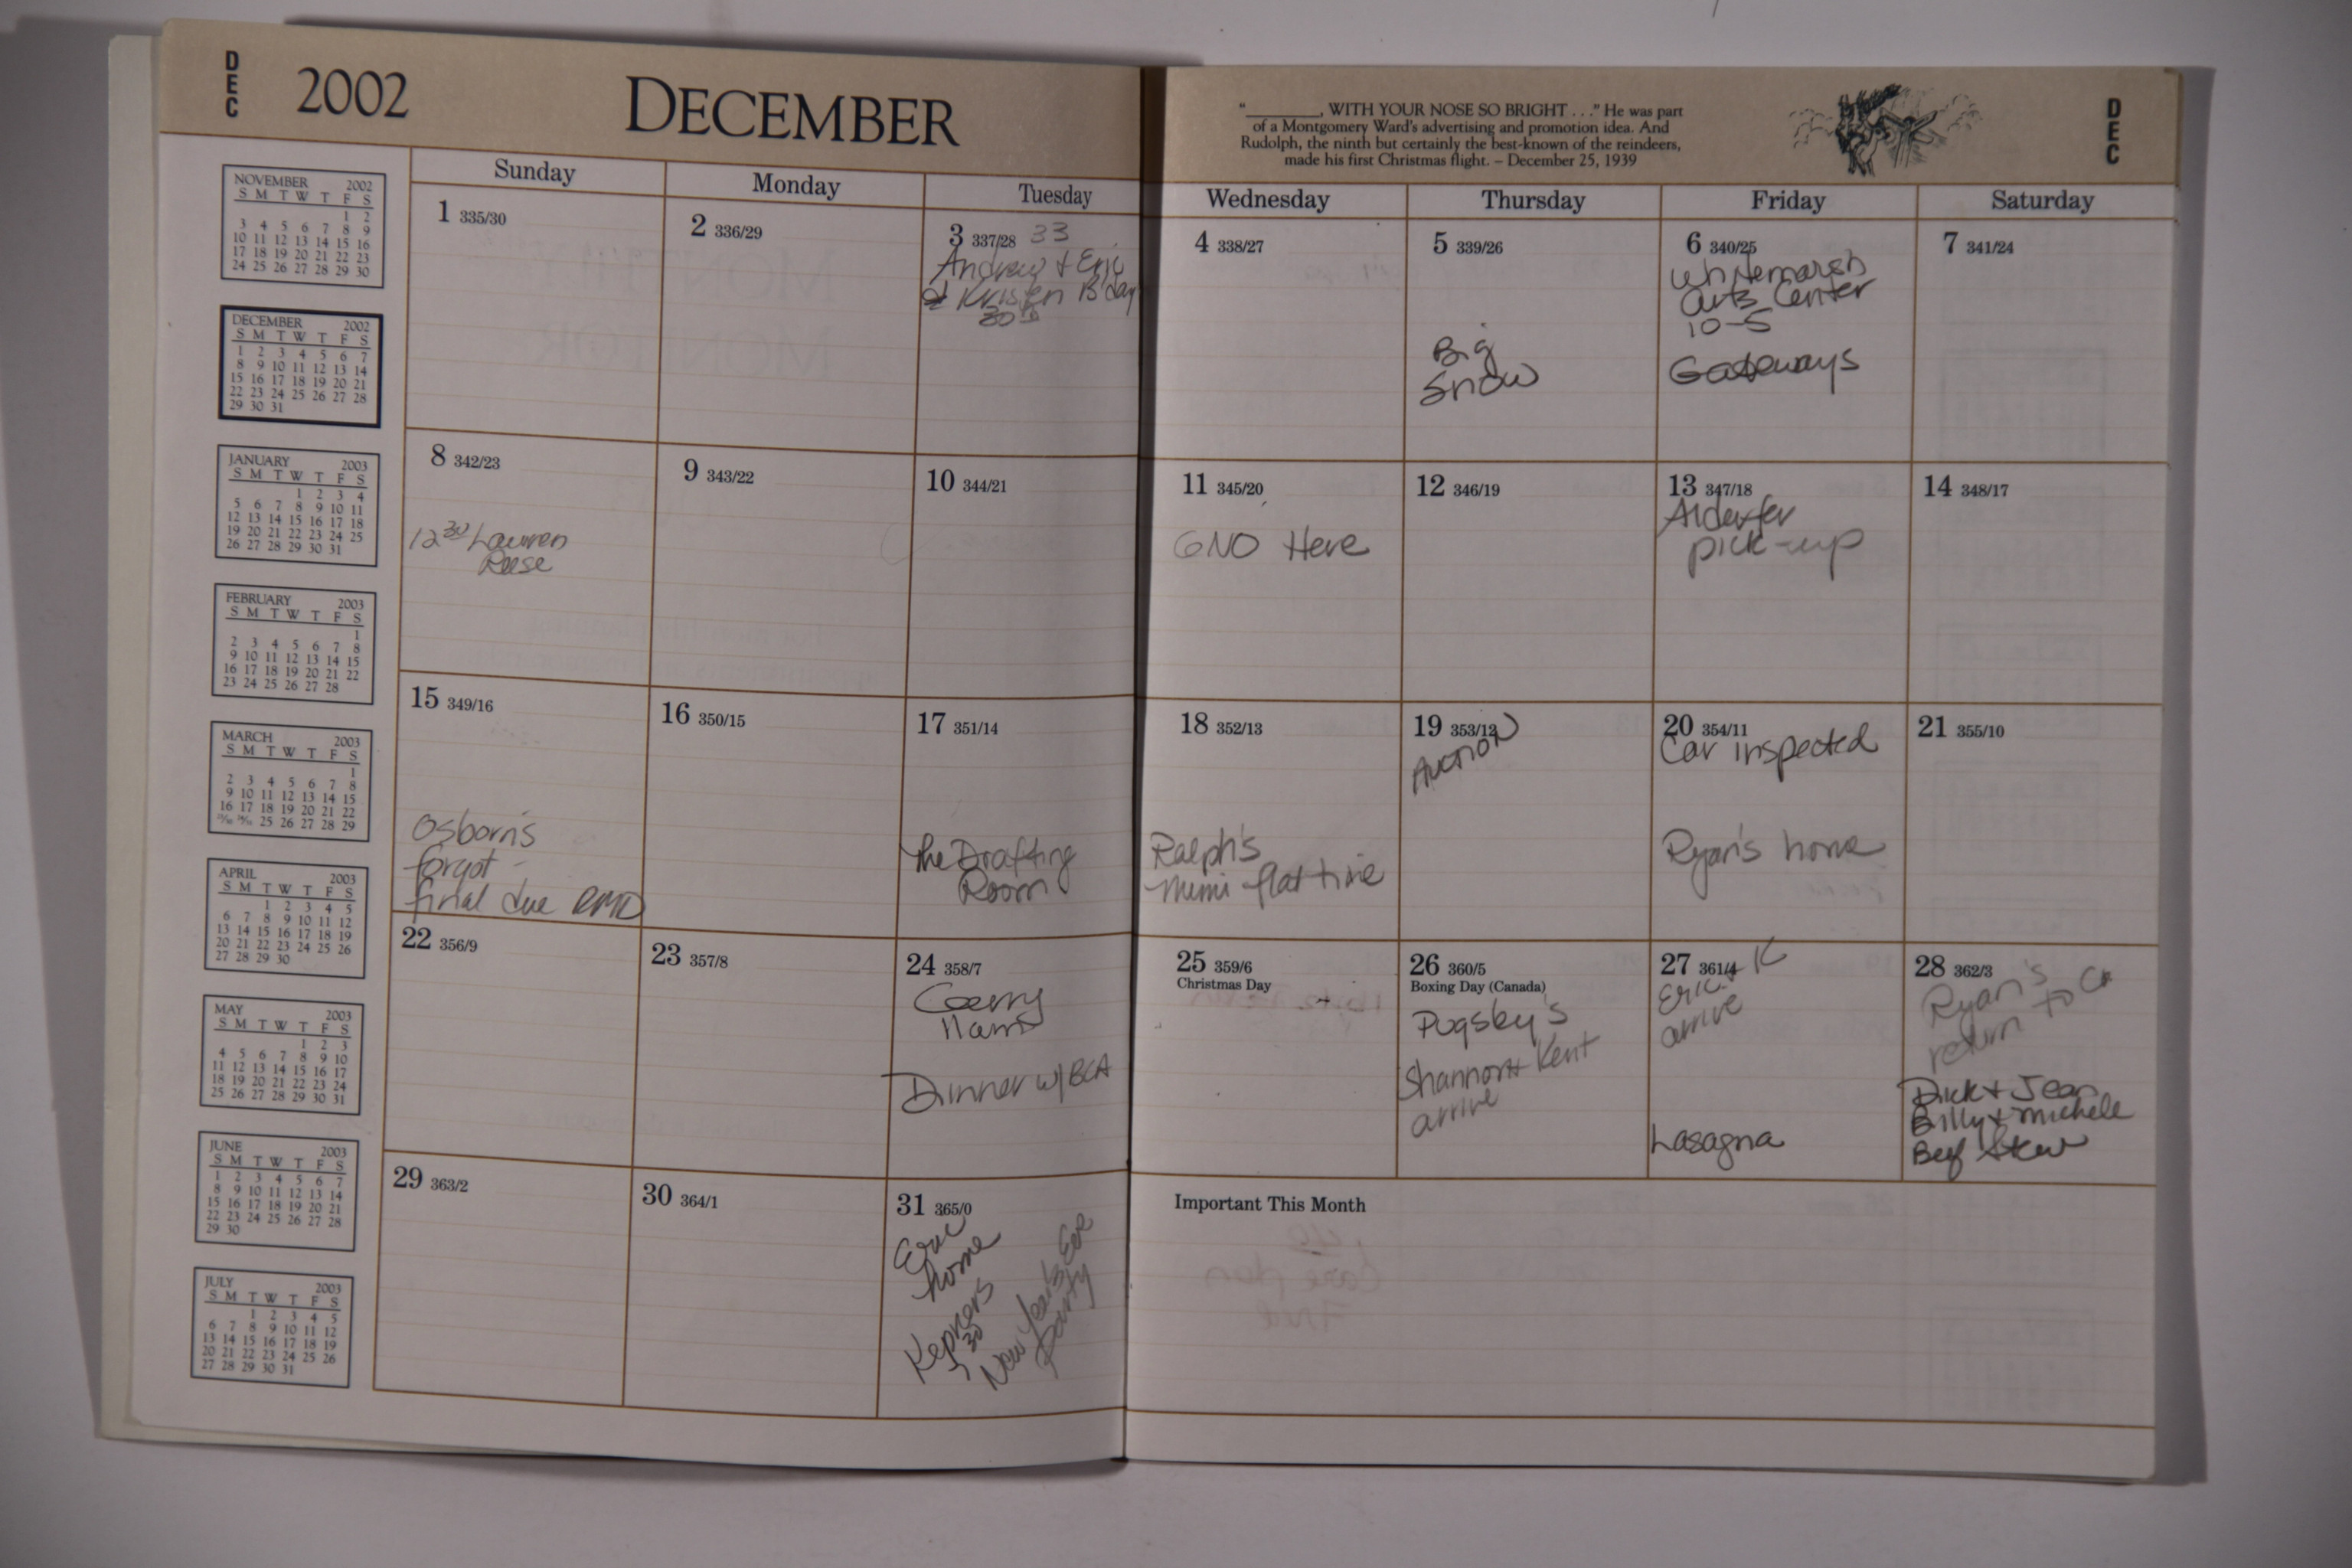 DEC
2002
DECEMBER
"________, WITH YOUR NOSE SO BRIGHT . . ." He was part
of a Montgomery Ward's advertising and promotion idea. And
Rudolph, the ninth but certainly the best-known of the reindeers,
made his first Christmas flight. – December 25, 1939
DEC
NOVEMBER 2002
S M T W T F S
1 2
3 4 5 6 7 8 9
10 11 12 13 14 15 16
17 18 19 20 21 22 23
24 25 26 27 28 29 30
DECEMBER 2002
S M T W T F S
1 2 3 4 5 6 7
8 9 10 11 12 13 14
15 16 17 18 19 20 21
22 23 24 25 26 27 28
29 30 31
JANUARY 2003
S M T W T F S
1 2 3 4
5 6 7 8 9 10 11
12 13 14 15 16 17 18
19 20 21 22 23 24 25
26 27 28 29 30 31
FEBRUARY 2003
S M T W T F S
1
2 3 4 5 6 7 8
9 10 11 12 13 14 15
16 17 18 19 20 21 22
23 24 25 26 27 28
MARCH 2003
S M T W T F S
1
2 3 4 5 6 7 8
9 10 11 12 13 14 15
16 17 18 19 20 21 22
23/30 24/31 25 26 27 28 29
APRIL 2003
S M T W T F S
1 2 3 4 5
6 7 8 9 10 11 12
13 14 15 16 17 18 19
20 21 22 23 24 25 26
27 28 29 30
MAY 2003
S M T W T F S
1 2 3
4 5 6 7 8 9 10
11 12 13 14 15 16 17
18 19 20 21 22 23 24
25 26 27 28 29 30 31
JUNE 2003
S M T W T F S
1 2 3 4 5 6 7
8 9 10 11 12 13 14
15 16 17 18 19 20 21
22 23 24 25 26 27 28
29 30
JULY 2003
S M T W T F S
1 2 3 4 5
6 7 8 9 10 11 12
13 14 15 16 17 18 19
20 21 22 23 24 25 26
27 28 29 30 31
Sunday Monday Tuesday Wednesday Thursday Friday Saturday
1 335/30
2 336/29
3 337/28 33
Andrew + Eric
Kristen B'day
30th
4 338/27
5 339/26
Big
Snow
6 340/25
Whitemarsh
Arts Center
10-5
Gateways
7 341/24
8 342/23
12 30 Lauren
Reese
9 343/22
10 344/21
11 345/20
GNO Here
12 346/19
13 347/18
Alderfer
pick-up
14 348/17
15 349/16
Osborn's
forgot -
final due RMD
16 350/15
17 351/14
The Drafting
Room
18 352/13
Ralph's
Mimi flat tire
19 353/12
Auction
20 354/11
Car inspected
Ryan's home
21 355/10
22 356/9
23 357/8
24 358/7
Gerry
Harris
Dinner w/ BCA
25 359/6
Christmas Day
26 360/5
Boxing Day (Canada)
Pugsley's
Shannon + Kent
arrive
27 361/4
Eric + K
arrive
Lasagna
28 362/3
Ryan's
return to CA
Dick + Jean
Billy + Michele
Beef Stew
29 363/2
30 364/1
31 365/0
Eric
home
Kepners
7 30
New Years Eve
Party
Important This Month